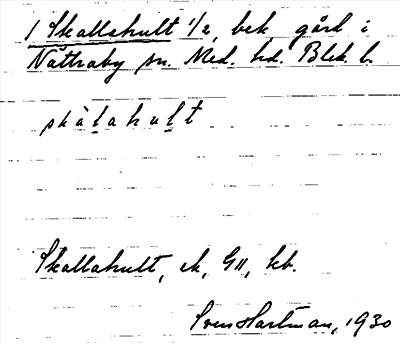 1 Skallahult 1/2, bek. gård i
Nättraby sn. Med. hd. Blek. l.
skàlahult
Skallahult, ek, G11, kb.
Sven Hartman, 1930